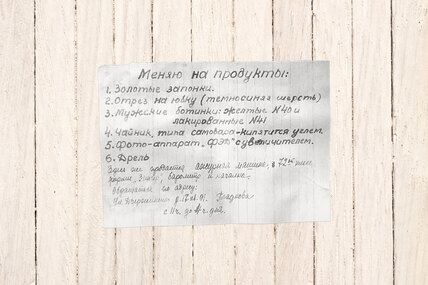 Меняю на продукты:
1. Золотые запонки.
2. Отрез на юбку (темносиняя шерсть)
3. Мужские ботинки: желтые N40 и
лакированные N41
4. Чайник типа самовара-кипятится углем.
5. Фото-аппарат „ФЭД" с увеличителем.
6. Дрель
Здесь же продается машина, в
барометр и
Обращаться по адресу:
Ул.